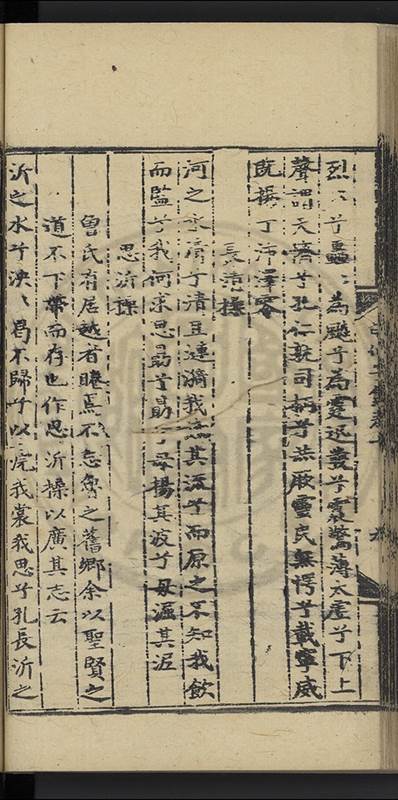 烈烈兮飍飍為飈兮為霆迅叢兮震驚薄太崖兮下上
聲謂天齊兮孔仁執司柄兮共厥靈民無愕兮載寧威
既撰兮沛澤零
長清操
河之水清兮清且漣漪我其流兮而原之不知我飲
而監兮我何求思勗壹勗兮毋揚其波兮毋溷其泥
思沂操
曾氏有居越者瞻焉不忘魯之舊鄉余以聖賢之
道不下帶而存也作思沂操以廣其志云
沂之水兮泱、曷不歸兮以浣我裳我思兮孔長沂之